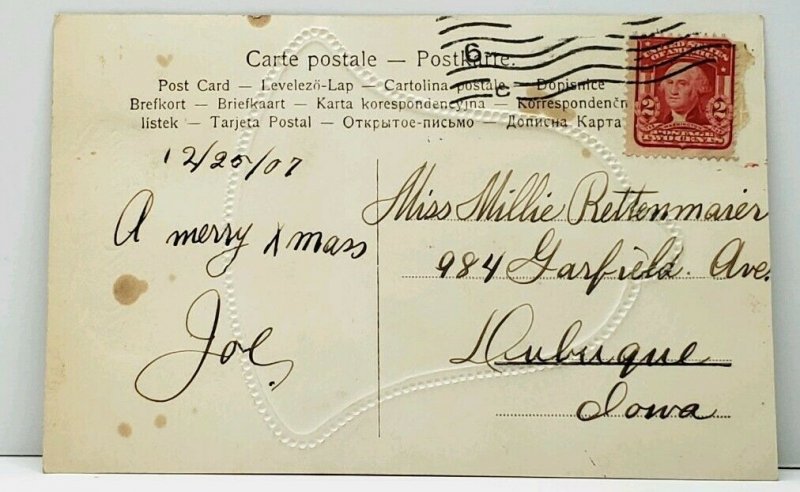 6
C
Carte postale — Postkarte.
Post Card — Levelező-Lap — Cartolina postale — Dopisnice
Brefkort — Briefkaart — Karta korespondencyjna — Korrespondenčn
listek — Tarjeta Postal — Открытое-письмо — Дописна Карта
UNITED STATES
OF AMERICA
2 2
POSTAGE
TWO CENTS
12/25/07
A merry Xmass
Joe.
Miss Millie Rettenmaier
984 Garfield. Ave.
Dubuque
Iowa